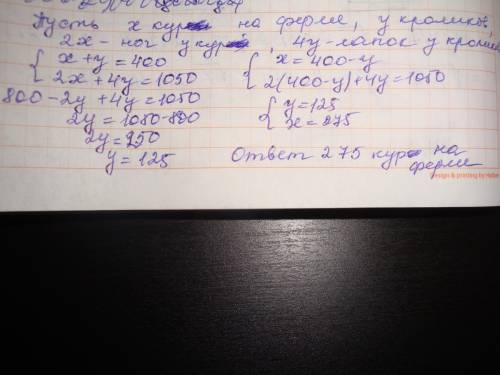 Пусть x кур на ферме, y кроликов,
2x - ног у кур, 4y - лапок у кроли
{ x+y=400
2x+4y=1050
{ x=400-y
2(400-y)+4y=1050
800-2y+4y=1050
2y=1050-800
2y=250
y=125
{ y=125
x=275
Ответ 275 кур на ферме
Design & printing by Hatber